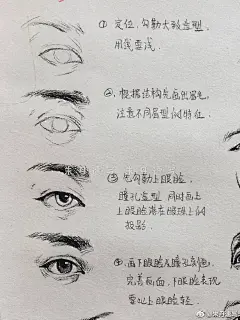 ① 定位，勾勒大致造型，
用线要浅。
②，根据结构先画出眉毛，
注意不同眉型的特征
③ 先勾勒上眼睑
瞳孔造型 同时画上
上眼睑落在眼球上的
投影
④，画下眼睑及瞳孔刻画，
完善画面，下眼睑表现
要比上眼睑轻